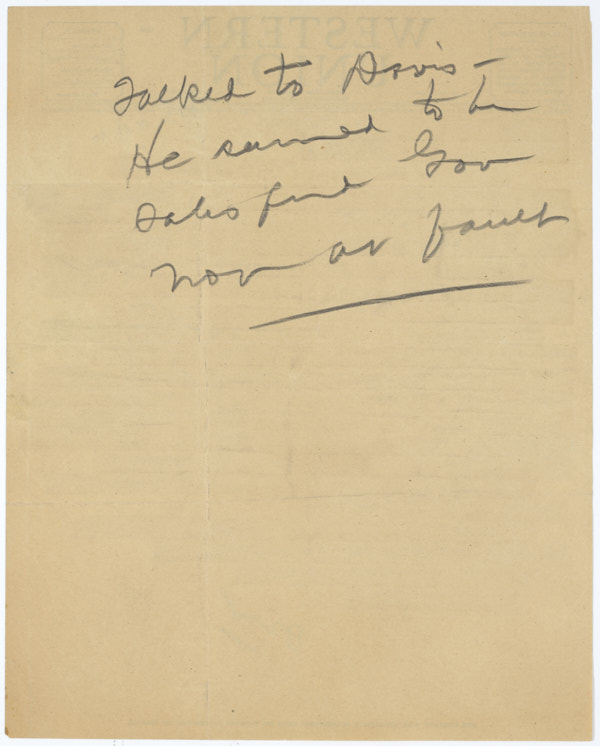 WESTERN
UNION
Talked to Davis -
He seemed to be
satisfied Gov
not at fault